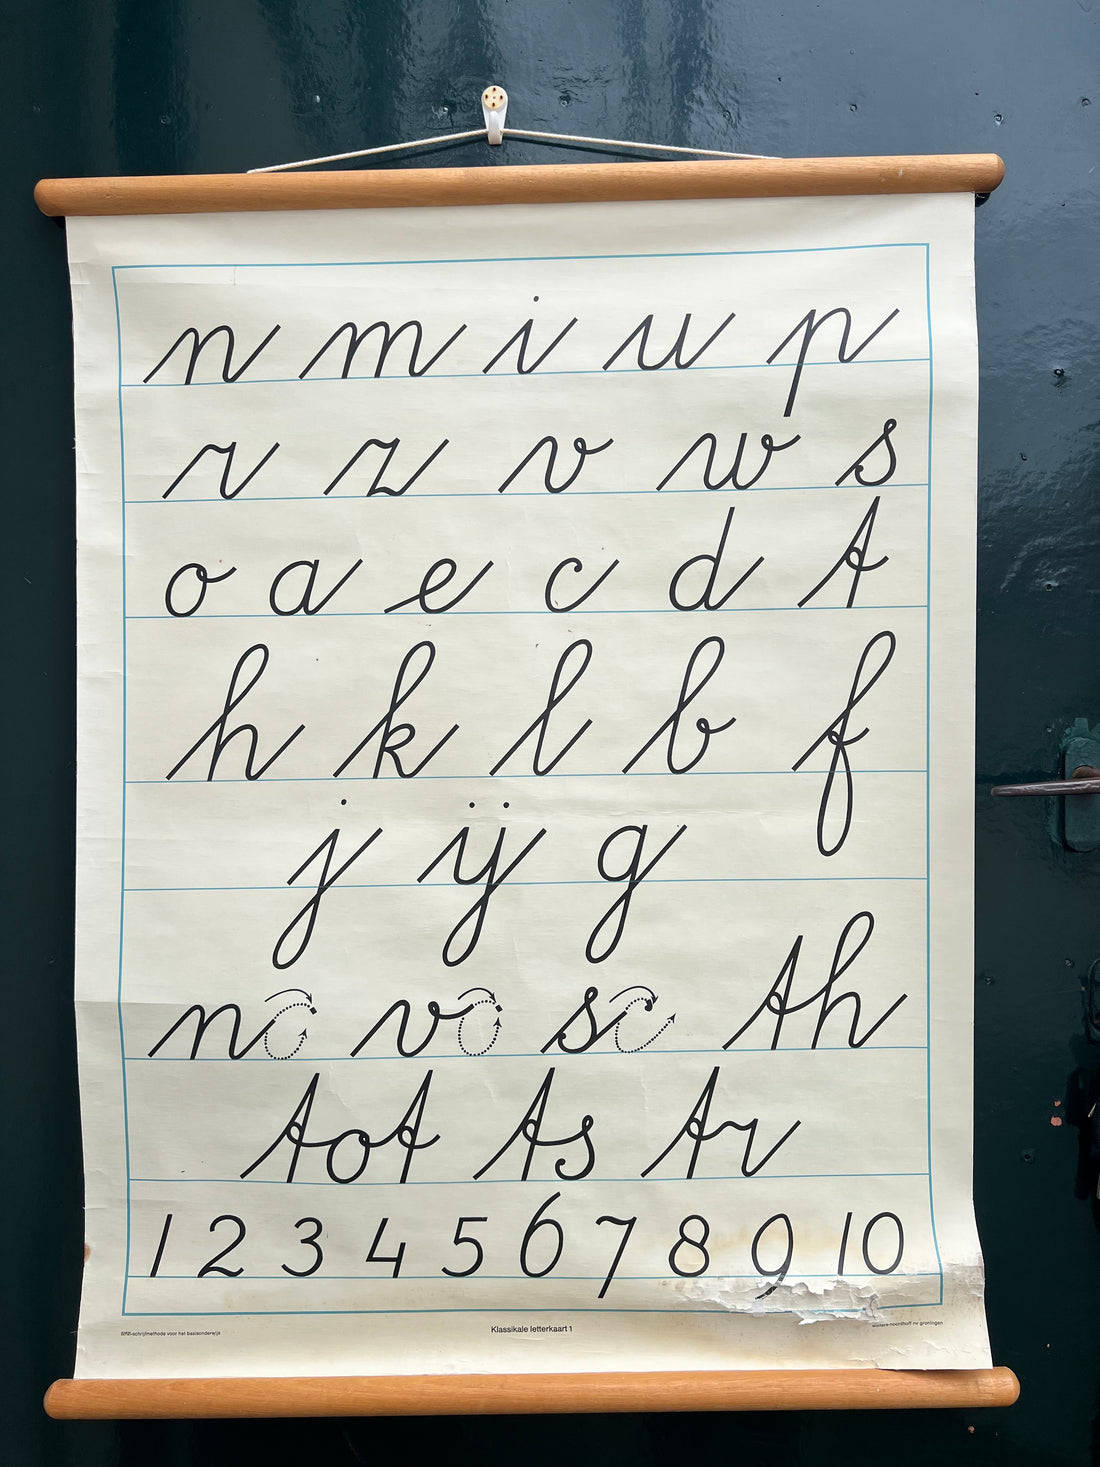 n m i u p
r z v w s
o a e c d t
h k l b f
j ij g
no vo sc th
tot ts tr
1 2 3 4 5 6 7 8 9 10
schrijfmethode voor het basisonderwijs
Klassikale letterkaart 1
wolters-noordhoff nv groningen